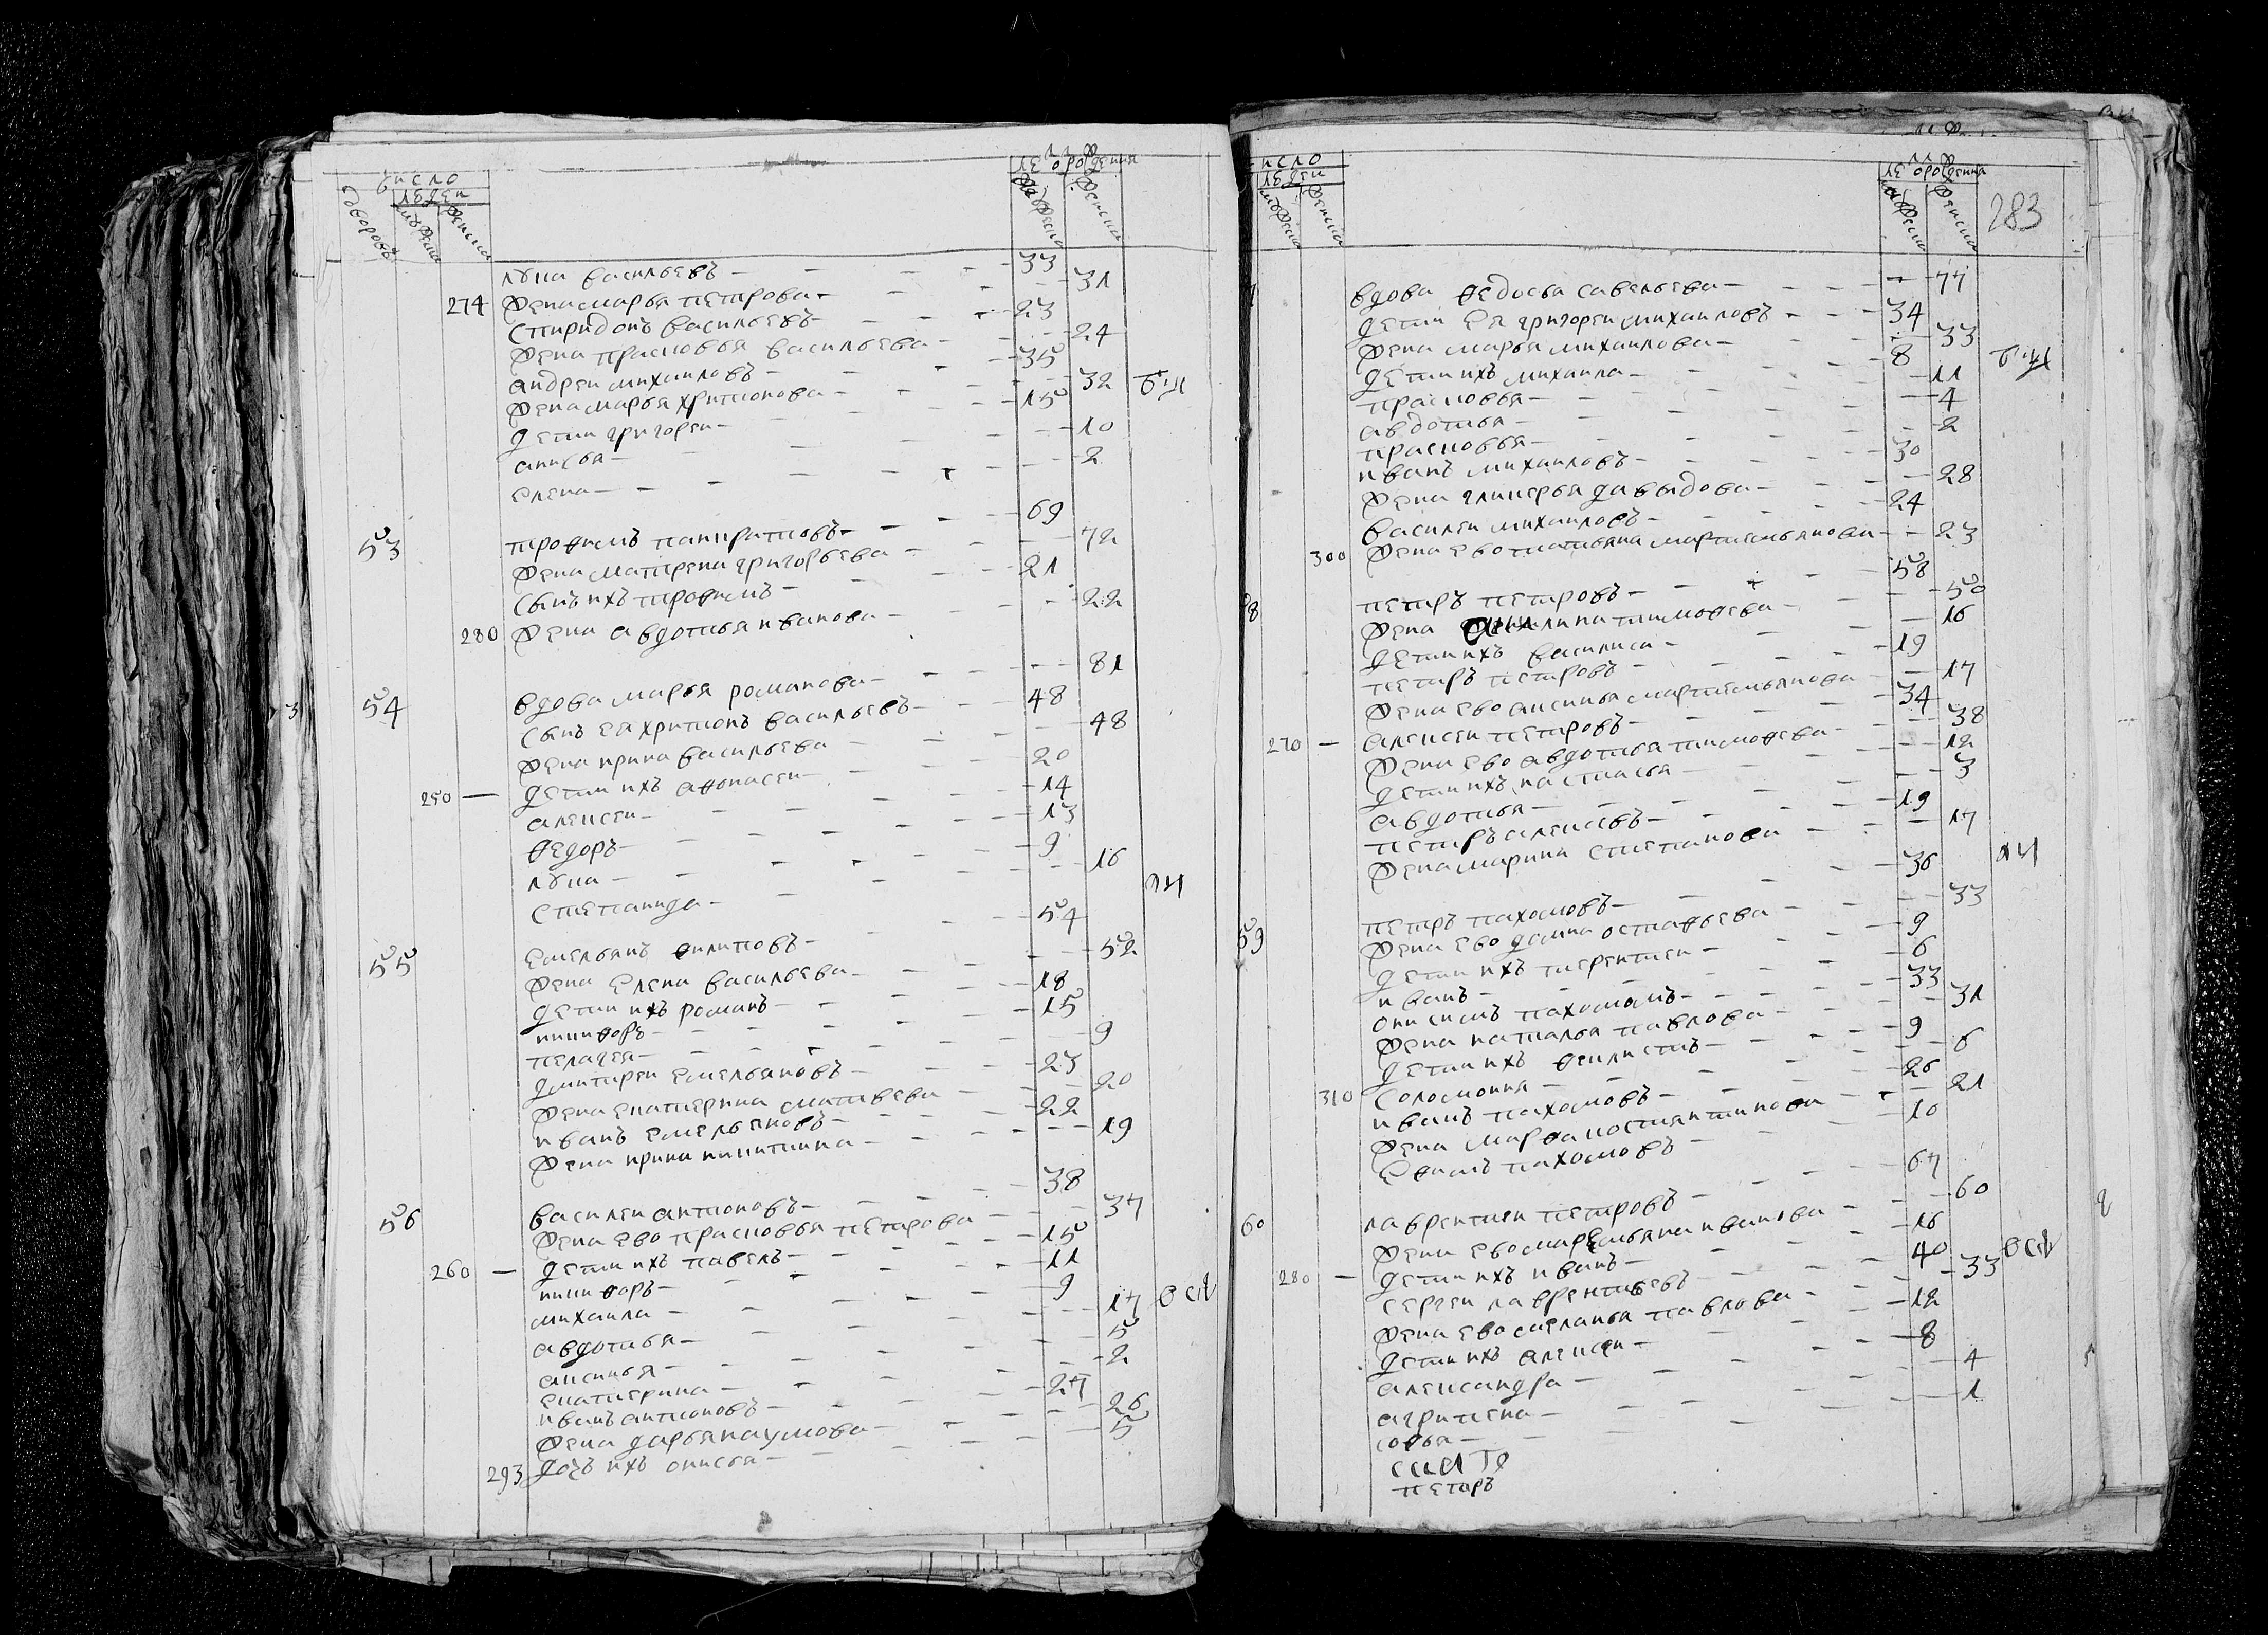 число
людеи
лет орожения
дворовъ
мужеска
женска
мужеска
женска
лука васильевъ — 33
274 жена марья петрова — 31
спиридонъ васильевъ — 23
жена прасковья васильева — 24
андреи михаиловъ — 35
жена марья харитонова — 32
дети григореи — 15
анисья — 10
елена — 2
53 трофимъ панкратовъ — 69
жена матрена григорьева — 72
сынъ ихъ трофимъ — 21
280 жена авдотья иванова — 22
54 вдова марья романова — 81
сынъ ея харитонъ васильевъ — 48
жена ирина васильева — 48
250 — дети ихъ афонасеи — 20
алексеи — 14
федоръ — 13
лука — 9
степанида — 16
55 емельянъ филиповъ — 54
жена елена васильева — 52
дети ихъ романъ — 18
никифоръ — 15
пелагея — 9
дмитреи емельяновъ — 23
жена екатерина матвеева — 20
иванъ емельяновъ — 22
жена ирина никитина — 19
56 василеи антоновъ — 38
жена ево прасковья петрова — 37
260 — дети ихъ павелъ — 15
никифоръ — 11
михаила — 9
авдотья — 17
аксинья — 5
екатерина — 2
иванъ антоновъ — 27
жена дарья наумова — 26
293 дочь ихъ анисья — 5
число
людеи
лет орожения
мужеска
женска
мужеска
женска
283
вдова федосья савельева — 77
дети ея григореи михаиловъ — 34
жена марья михаилова — 33
дети ихъ михаила — 8
прасковья — 11
авдотья — 4
прасковья — 2
иванъ михаиловъ — 30
жена гликерья давыдова — 28
василеи михаиловъ — 24
300 жена ево татьяна мартемьянова — 23
58 петръ петровъ — 58
жена акилина тимофеева — 50
дети ихъ василиса — 16
петръ петровъ — 19
жена ево аксинья мартемьянова — 17
270 — алексеи петровъ — 34
жена ево авдотья тимофеева — 38
дети ихъ настасья — 12
авдотья — 3
петръ алексевъ — 19
жена марина степанова — 17
59 петръ пахомовъ — 36
жена ево домна остафьева — 33
дети ихъ терентеи — 9
иванъ — 6
онисимъ пахомовъ — 33
жена наталья павлова — 31
дети ихъ феклистъ — 9
310 соломония — 6
иванъ пахомовъ — 26
жена марфа костянтинова — 21
ефимъ пахомовъ — 10
60 лаврентеи петровъ — 67
жена ево маремьяна иванова — 60
280 — дети ихъ иванъ — 16
сергеи лаврентьевъ — 40
жена ево меланья павлова — 33
дети ихъ алексеи — 12
александра — 8
агрипена — 4
софья — 1
петръ